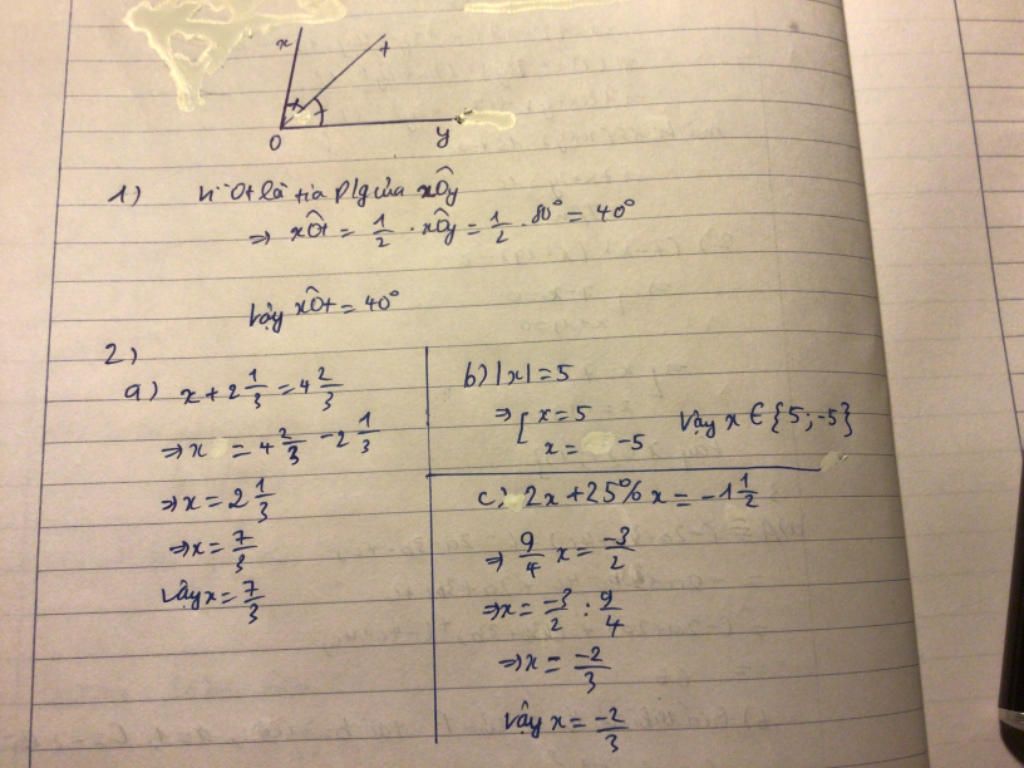 x
t
O
y
1) Vì Ot là tia p/g của xÔy
⇒ xÔt = 1/2 . xÔy = 1/2 . 80° = 40°
Vậy xÔt = 40°
2)
a) x + 2 1/3 = 4 2/3
⇒ x = 4 2/3 - 2 1/3
⇒ x = 2 1/3
⇒ x = 7/3
Vậy x = 7/3
b) |x| = 5
⇒ [ x = 5
x = -5
Vậy x ∈ {5; -5}
c) 2x + 25% x = -1 1/2
⇒ 9/4 x = -3/2
⇒ x = -3/2 : 9/4
⇒ x = -2/3
Vậy x = -2/3